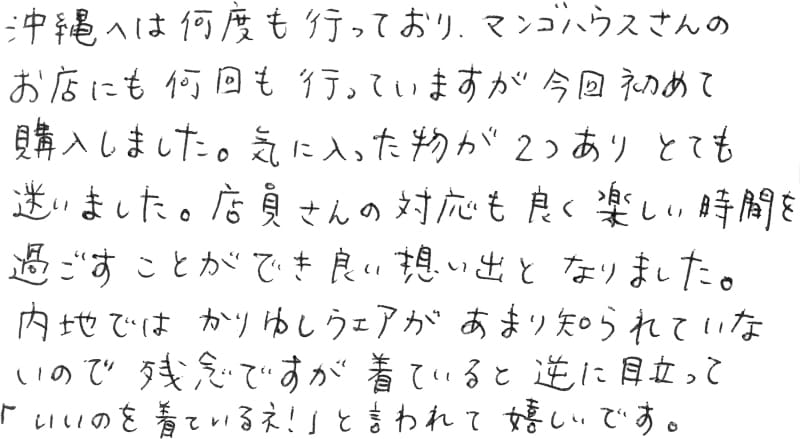 沖縄へは何度も行っており、マンゴハウスさんの
お店にも何回も行っていますが今回初めて
購入しました。気に入った物が2つありとても
迷いました。店員さんの対応も良く楽しい時間を
過ごすことができ良い想い出となりました。
内地ではかりゆしウェアがあまり知られていな
いので残念ですが着ていると逆に目立って
「いいのを着ているネ!」と言われて嬉しいです。